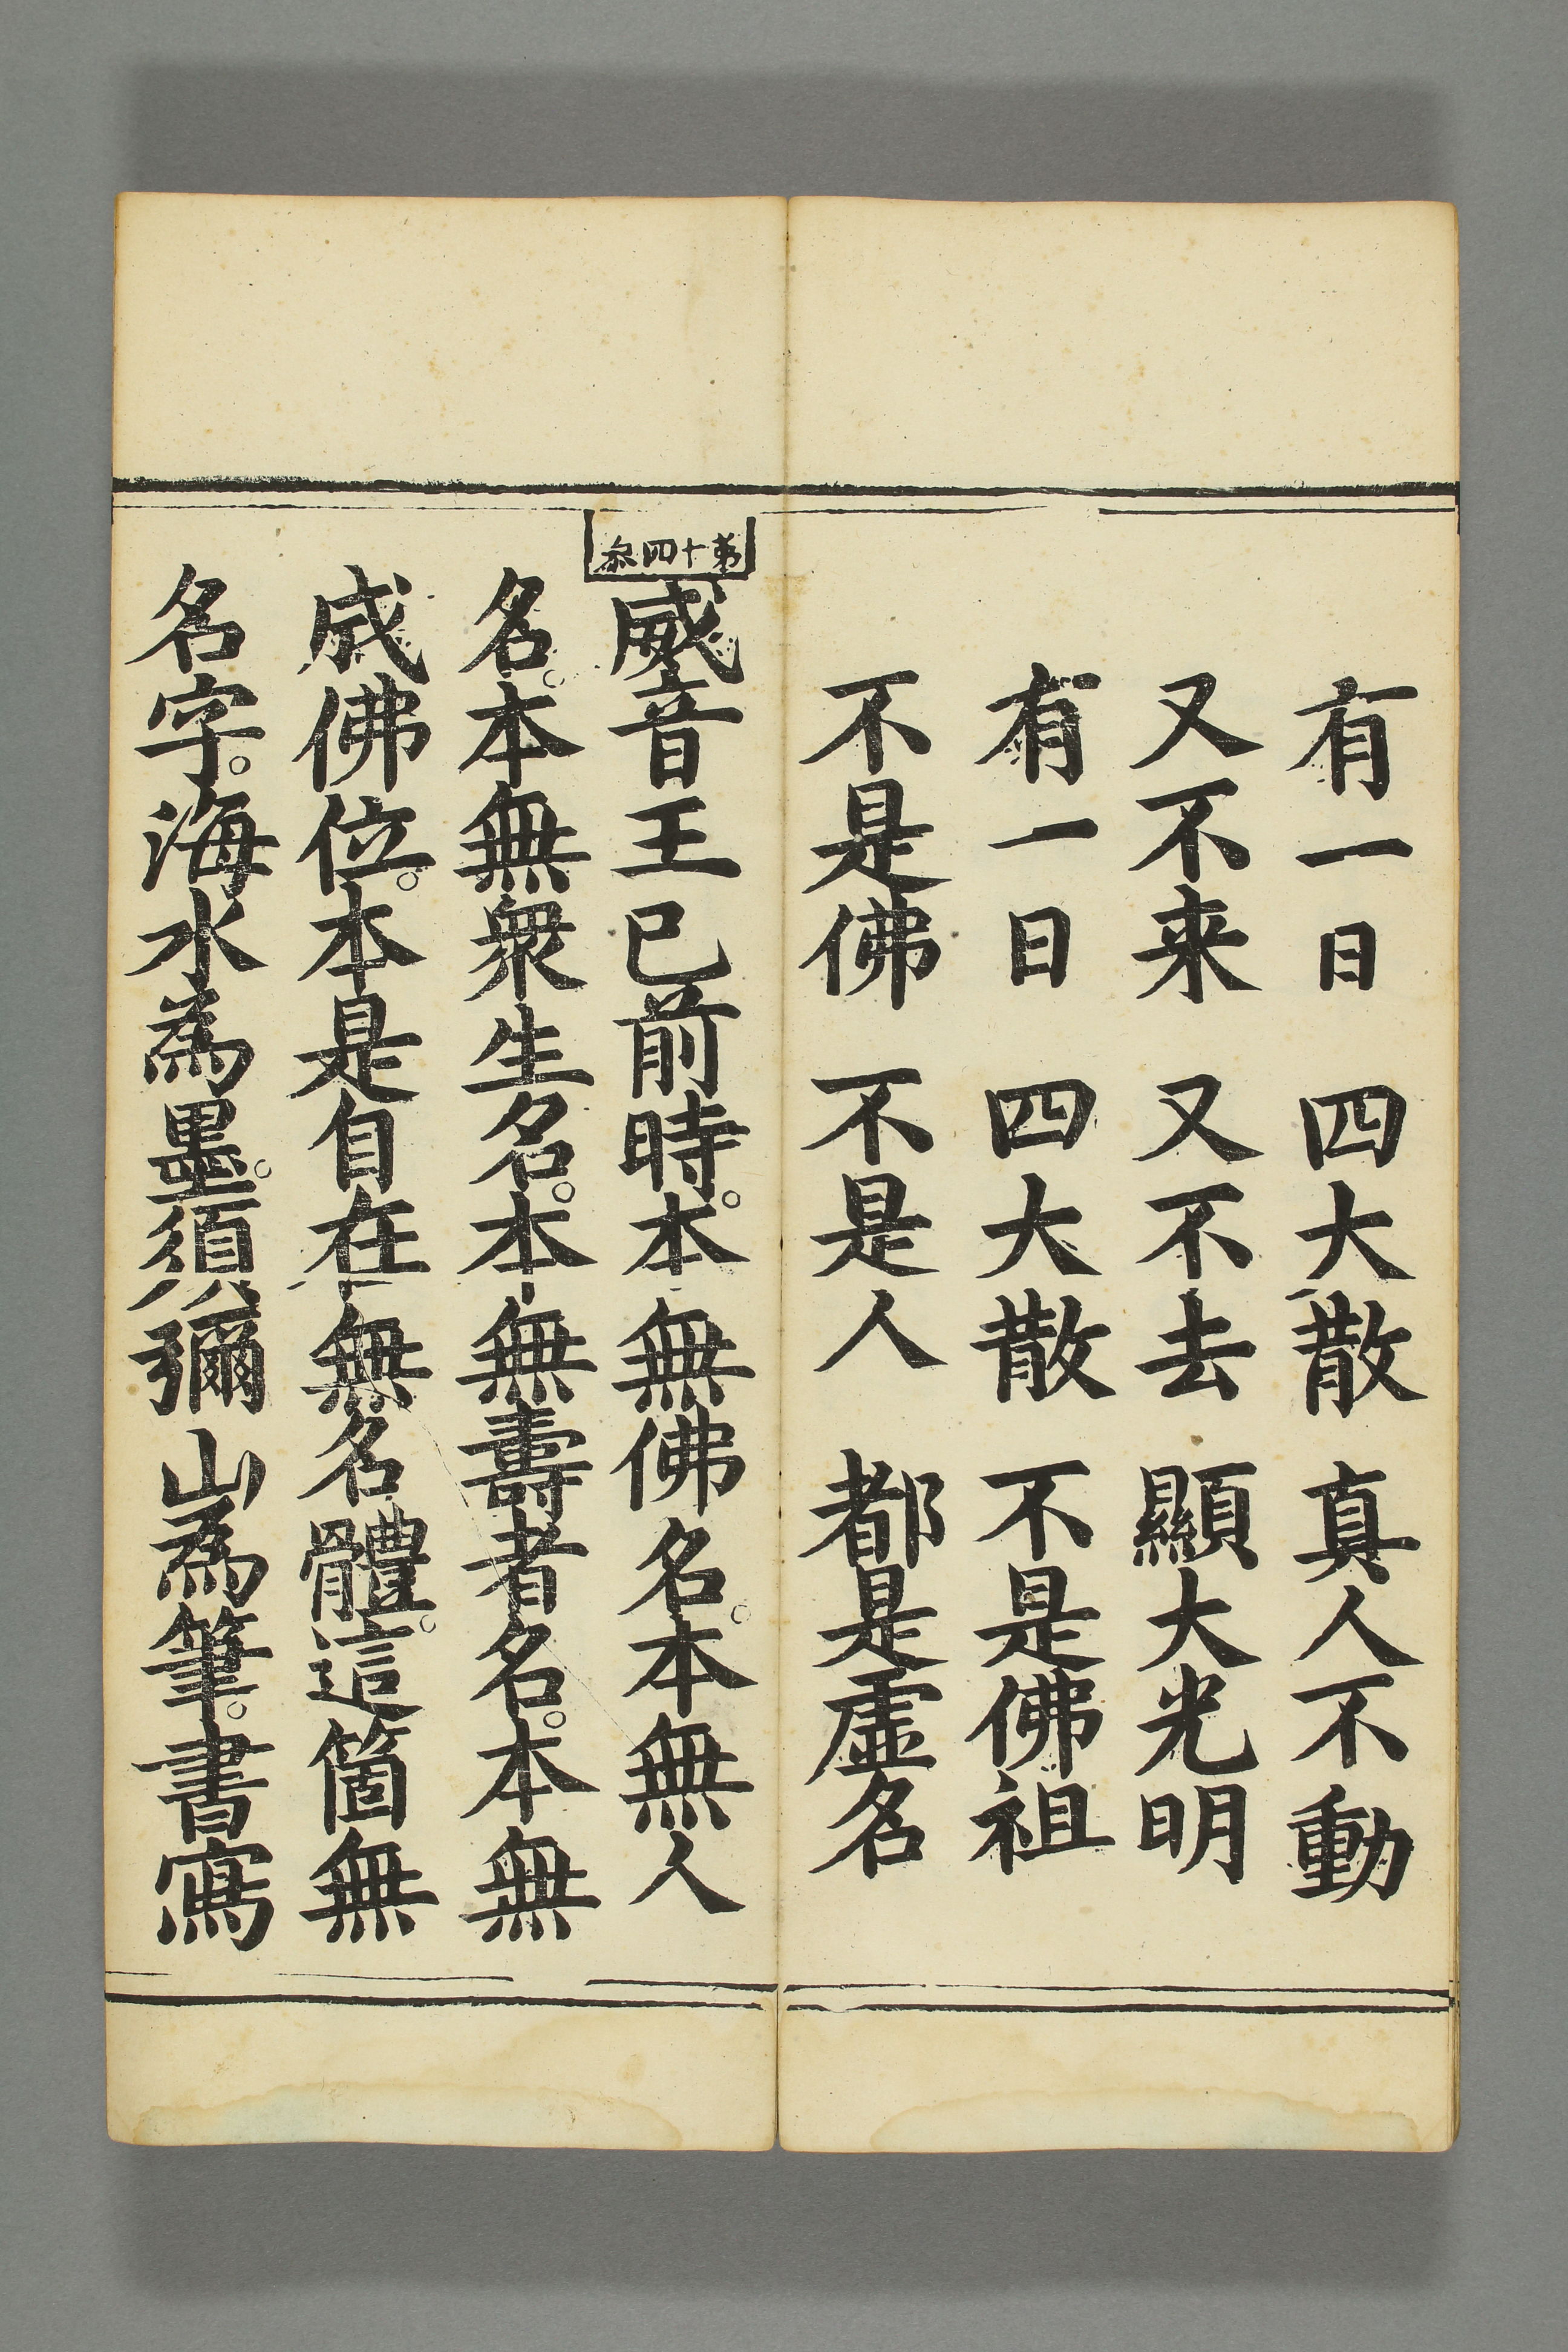 有一日　四大散　真人不動
又不来　又不去　顯大光明
有一日　四大散　不是佛祖
不是佛　不是人　都是虛名
第十四叅
威音王已前時。本無佛名。本無人
名。本無衆生名。本無壽者名。本無
成佛位。本是自在無名體。這箇無
名字。海水為墨。須彌山為筆。書寫